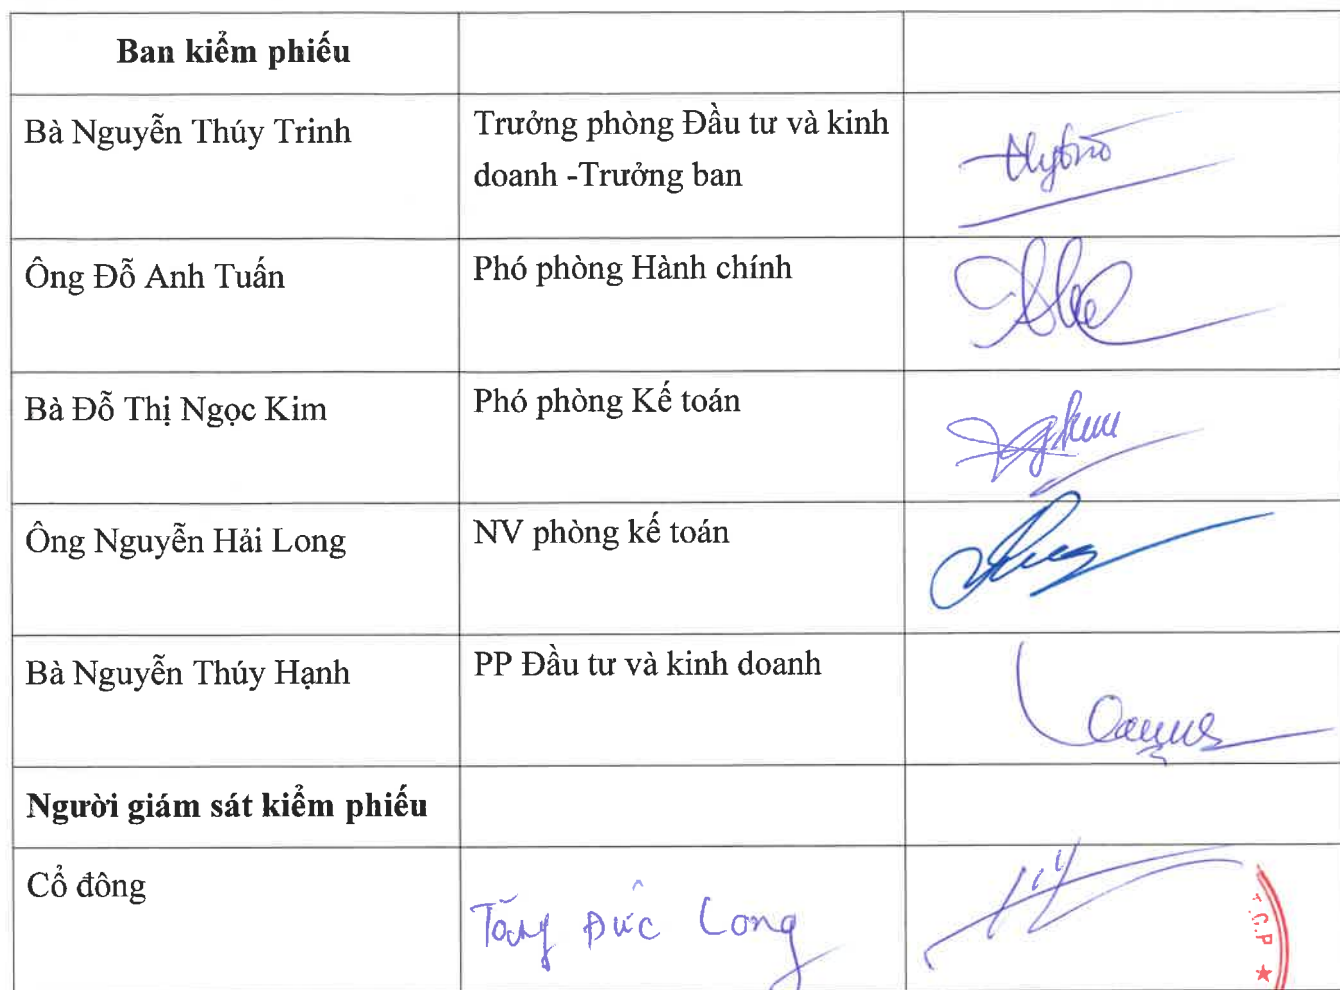 Ban kiểm phiếu
Bà Nguyễn Thúy Trinh
Trưởng phòng Đầu tư và kinh
doanh -Trưởng ban
Ông Đỗ Anh Tuấn
Phó phòng Hành chính
Bà Đỗ Thị Ngọc Kim
Phó phòng Kế toán
Ông Nguyễn Hải Long
NV phòng kế toán
Bà Nguyễn Thúy Hạnh
PP Đầu tư và kinh doanh
Người giám sát kiểm phiếu
Cổ đông
Tăng Đức Long
T.C.P ★